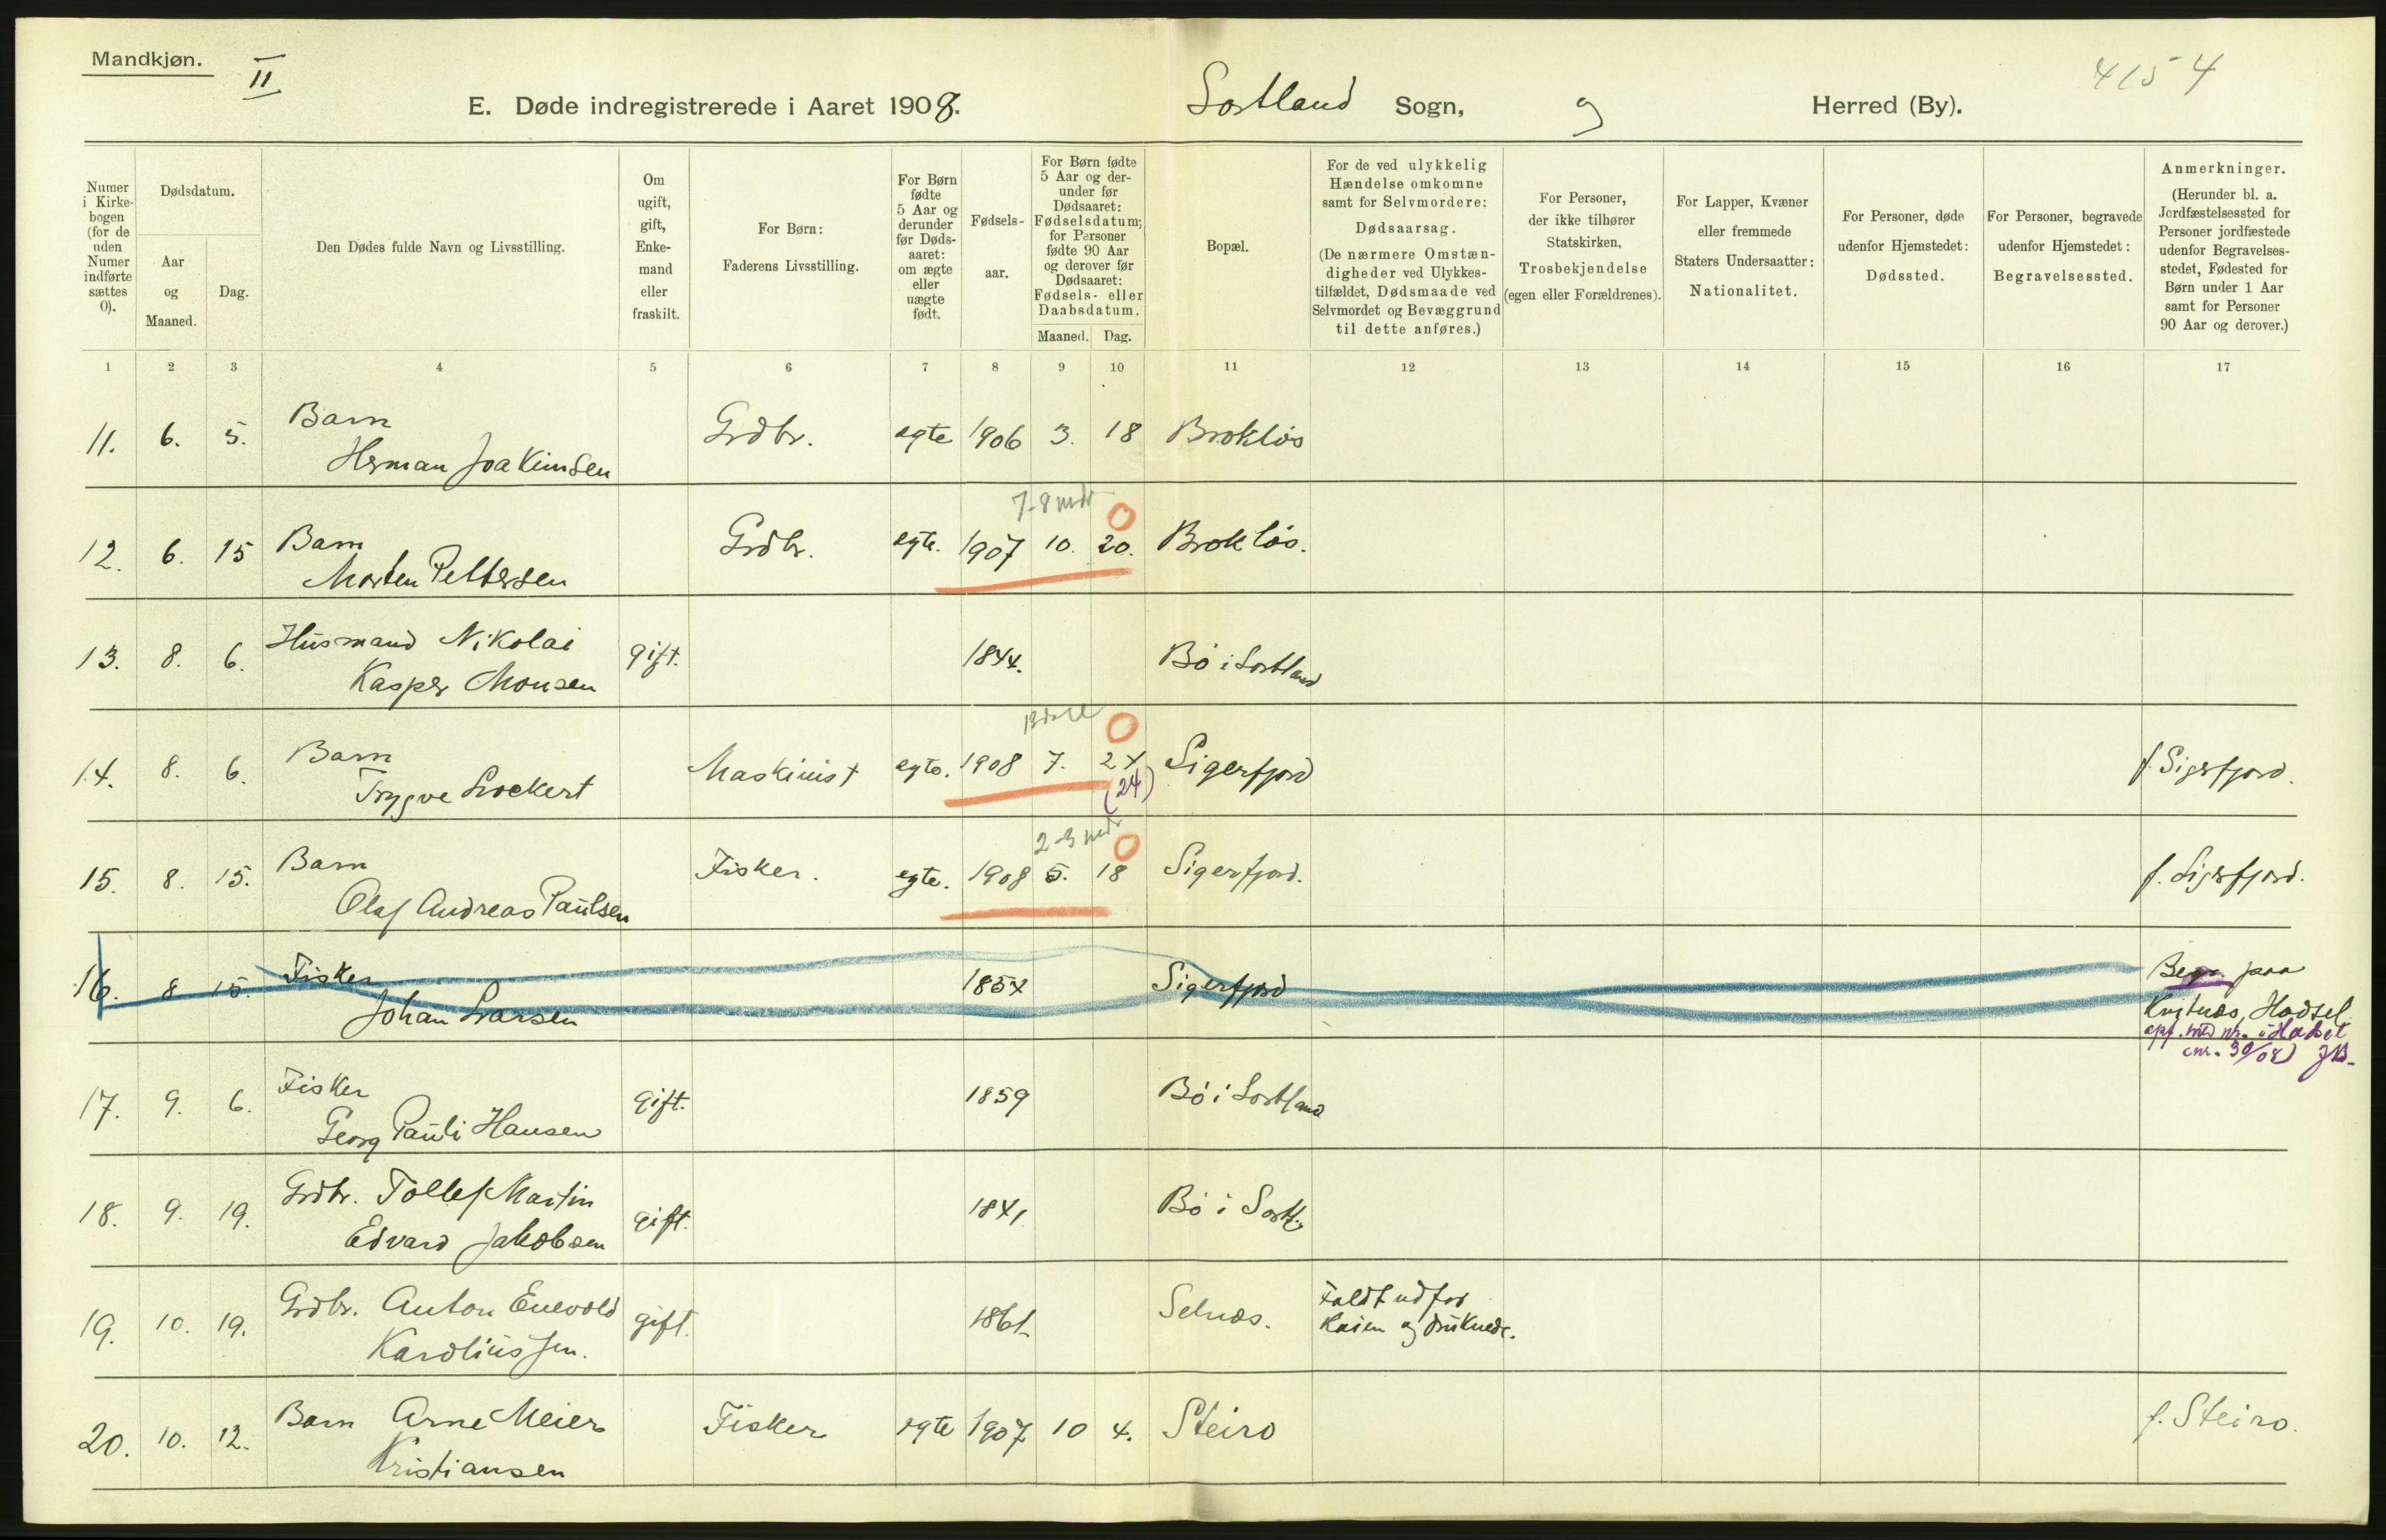 Mandkjøn.
II
4154
E. Døde indregistrerede i Aaret 1908.
Sortland Sogn, og Herred (By).
Numer i Kirkebogen (for de uden Numer indførte sættes 0).
Dødsdatum.
Aar og Maaned.
Dag.
Den Dødes fulde Navn og Livsstilling.
Om ugift, gift, Enkemand eller fraskilt.
For Børn: Faderens Livsstilling.
For Børn fødte 5 Aar og derunder før Dødsaaret: om ægte eller uægte født.
Fødselsaar.
For Børn fødte 5 Aar og derunder før Dødsaaret: Fødselsdatum; for Personer fødte 90 Aar og derover før Dødsaaret: Fødsels- eller Daabsdatum.
Maaned. Dag.
Bopæl.
For de ved ulykkelig Hændelse omkomne samt for Selvmordere: Dødsaarsag. (De nærmere Omstændigheder ved Ulykkestilfældet, Dødsmaade ved Selvmordet og Bevæggrund til dette anføres.)
For Personer, der ikke tilhører Statskirken, Trosbekjendelse (egen eller Forældrenes).
For Lapper, Kvæner eller fremmede Staters Undersaatter: Nationalitet.
For Personer, døde udenfor Hjemstedet: Dødssted.
For Personer, begravede udenfor Hjemstedet: Begravelsessted.
Anmerkninger. (Herunder bl. a. Jordfæstelsessted for Personer jordfæstede udenfor Begravelsesstedet, Fødested for Børn under 1 Aar samt for Personer 90 Aar og derover.)
1 2 3 4 5 6 7 8 9 10 11 12 13 14 15 16 17
11. 6. 5. Barn Grdbr. egte 1906 3. 18 Brokløs
Herman Joakimsen
7-8 mdr 0
12. 6. 15 Barn Grdbr. egte. 1907 10. 20. Brokløs.
Morten Pettersen
13. 8. 6. Husmand Nikolai gift. 1844. Bø i Sortland
Kasper Monsen
0
14. 8. 6. Barn Maskinist egte. 1908 7. 24 Sigerfjord f. Sigerfjord.
Trygve Lockert (24)
2-3 mdr 0
15. 8. 15. Barn Fisker. egte. 1908 5. 18 Sigerfjord. f. Sigerfjord.
Olaf Andreas Paulsen
16. 8 15. Fisker 1854 Sigerfjord Begr. paa
Johan Larsen Hadsel
opf. med nr. i Hadsel
(nr. 30/08)
17. 9. 6. Fisker gift. 1859 Bø i Sortland
Georg Pauli Hansen
18. 9. 19. Grdbr. Tollef Martin gift. 1841 Bø i Sortl.
Edvard Jakobsen
19. 10. 19. Grdbr. Anton Enevold gift. 1861 Selnæs. Faldt ud for
Karoliussen. Kaien og druknede.
20. 10. 12. Barn Arne Meier Fisker egte 1907 10 4. Steiro f. Steiro.
Kristiansen